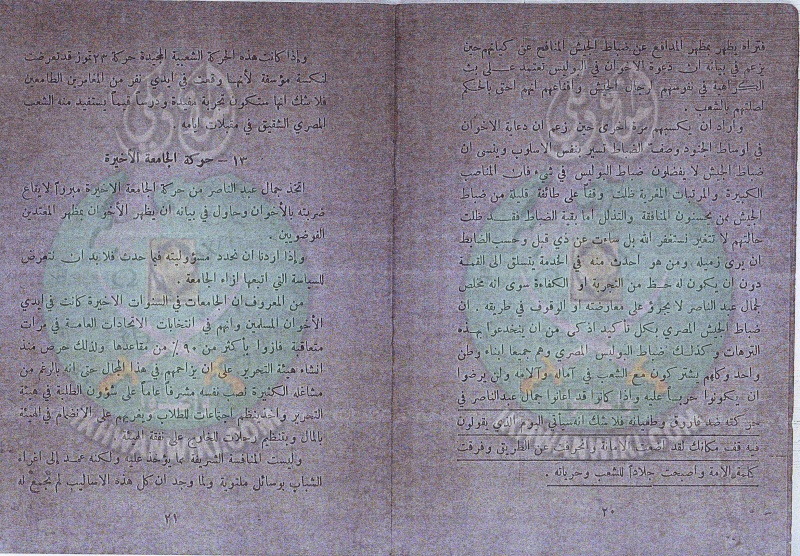 فتراه يظهر بمظهر المدافع عن ضباط الجيش المنافح عن كيانهم حين
يزعم في بيانه ان دعوة الاخوان في البوليس تعتمد على بث
الكراهية في نفوسهم رجال الجيش واقناعهم انهم احق بالحكم
لصلتهم بالشعب .
وأراد ان يكسبهم مرة اخرى حين زعم ان دعاية الاخوان
في اوساط الجنود وصف الضباط تسير بنفس الاسلوب وينسى ان
ضباط الجيش لا يفضلون ضباط البوليس في شيء فان المناصب
الكبيرة والمرتبات المغرية ظلت وقفاً على طائفة قليلة من ضباط
الجيش ممن يحسنون المنافقة والتذلل أما بقية الضباط فقد ظلت
حالتهم لا تتغير نستغفر الله بل ساءت عن ذي قبل وحسب الضابط
ان يرى زميله ومن هو أحدث منه في الخدمة يتسلق الى القمة
دون ان يكون له حظ من التجربة او الكفاءة سوى انه مخلص
لجمال عبد الناصر لا يجرؤ على معارضته او الوقوف في طريقه . ان
ضباط الجيش المصري بكل تأكيد اذكى من ان ينخدعوا بهذه
الترهات وكذلك ضباط البوليس المصري وهم جميعا ابناء وطن
واحد وكلهم يشتركون مع الشعب في آماله وآلامه ولن يرضوا
ان يكونوا حرباً عليه واذا كانوا قد اعانوا جمال عبد الناصر في
حركته ضد فاروق وطغيانه فلا شك انه سيأتي اليوم الذي يقولون
فيه قف مكانك لقد اضعت الامانة وانحرفت عن الطريق وفرقت
كلمة الامة واصبحت جلاداً للشعب وحرياته .
٢٠
وإذا كانت هذه الحركة الشعبية المجيدة حركة ٢٣ تموز قد تعرضت
لنكسة مؤسفة لأنها وقعت في ايدي نفر من المغامرين الطامعين
فلا شك انها ستكون تجربة مفيدة ودرساً قيماً يستفيد منه الشعب
المصري الشقيق في مقبلات ايامه
١٣ – حركة الجامعة الأخيرة
اتخذ جمال عبد الناصر من حركة الجامعة الاخيرة مبرراً لايقاع
ضربته بالأخوان وحاول في بيانه ان يظهر الأخوان بمظهر المعتدين
الفوضويين .
وإذا اردنا ان نحدد مسؤوليته فيما حدث فلابد ان نتعرض
للسياسة التي اتبعها ازاء الجامعة .
من المعروف ان الجامعات في السنوات الاخيرة كانت في ايدي
الأخوان المسلمين وانهم في انتخابات الاتحادات العامة في مرات
متعاقبة فازوا بأكثر من ٩٠٪ من مقاعدها ولذلك حرص منذ
انشاء هيئة التحرير على ان يزاحمهم في هذا المجال حتى انه بالرغم من
مشاغله الكثيرة نصب نفسه مشرفاً عاماً على شؤون الطلبة في هيئة
التحرير واخذ ينظم اجتماعات للطلاب ويغريهم على الانضمام في الهيئة
بالمال وبتنظيم رحلات للخارج على نفقة الهيئة .
وليست المنافسة الشريفة مما يؤخذ عليه ولكنه عمد إلى اغراء
الشباب بوسائل ملتوية ولما وجد ان كل هذه الاساليب لم تجمع له
٢١